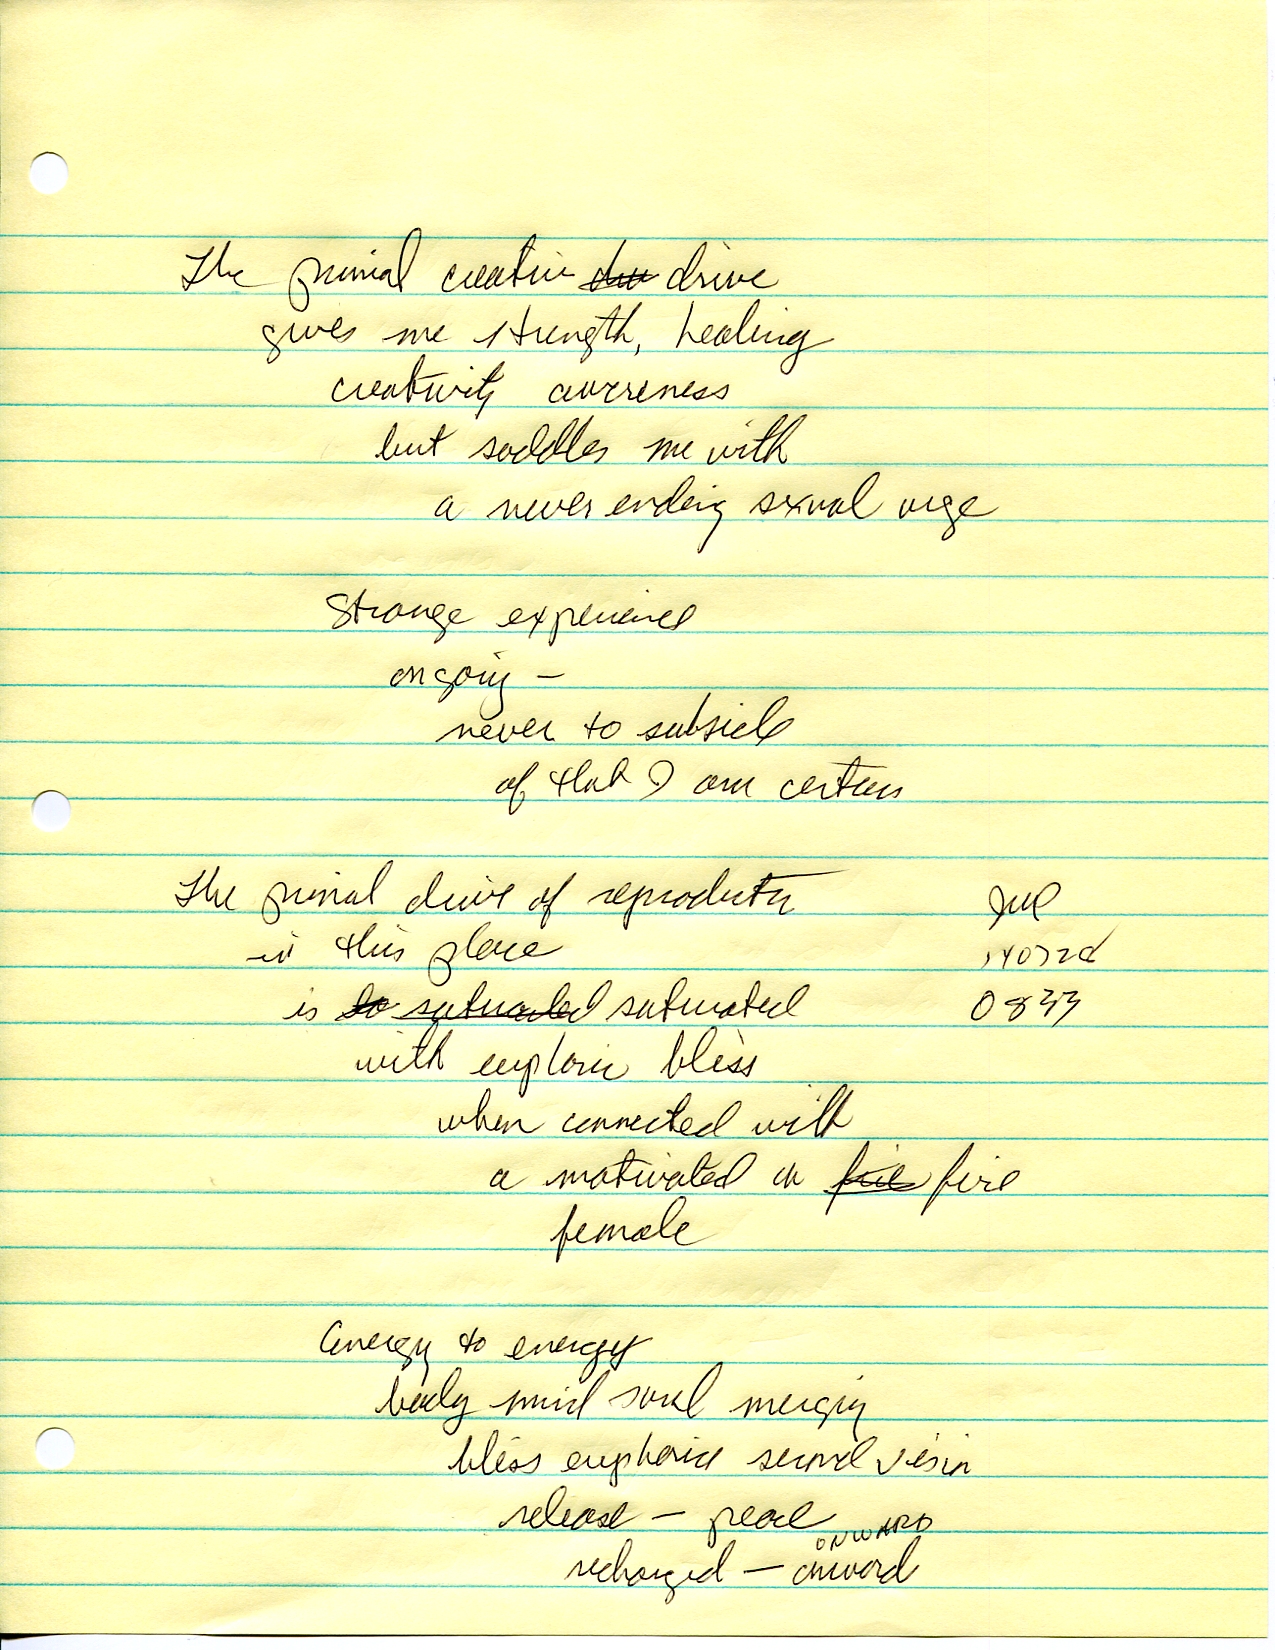 The primal creative drive
gives me strength, healing
creativity awareness
but saddles me with
a never ending sexual urge
Strange experience
ongoing —
never to subside
of that I am certain
The primal drive of reproductn
in this place
is to saturated saturated
with euphoric bliss
when connected with
a motivated on fire fire
female
Energy to energy
body mind soul merging
bliss euphoric second vision
release — peace
ONWARD
recharged — onward
0833